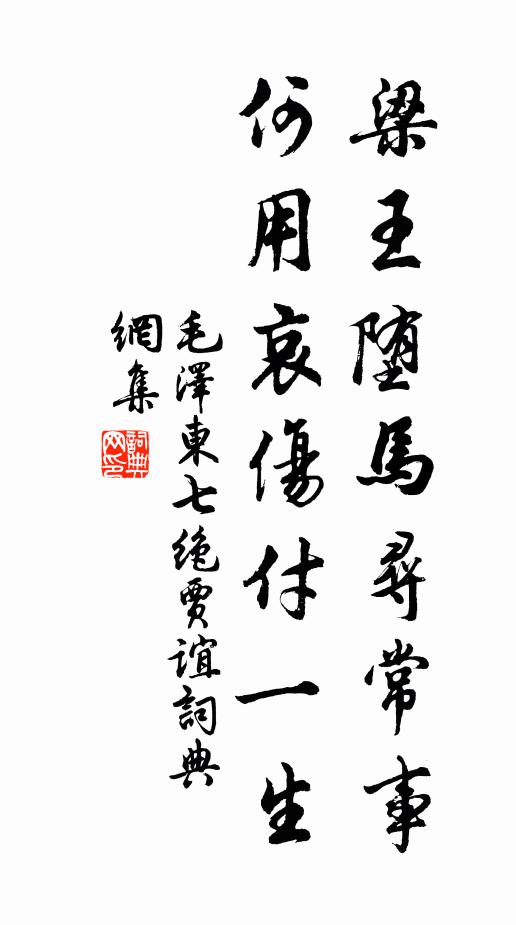 梁王堕馬尋常事
何用哀傷付一生
毛澤東七絶賈誼詞典
網集
詞典網印